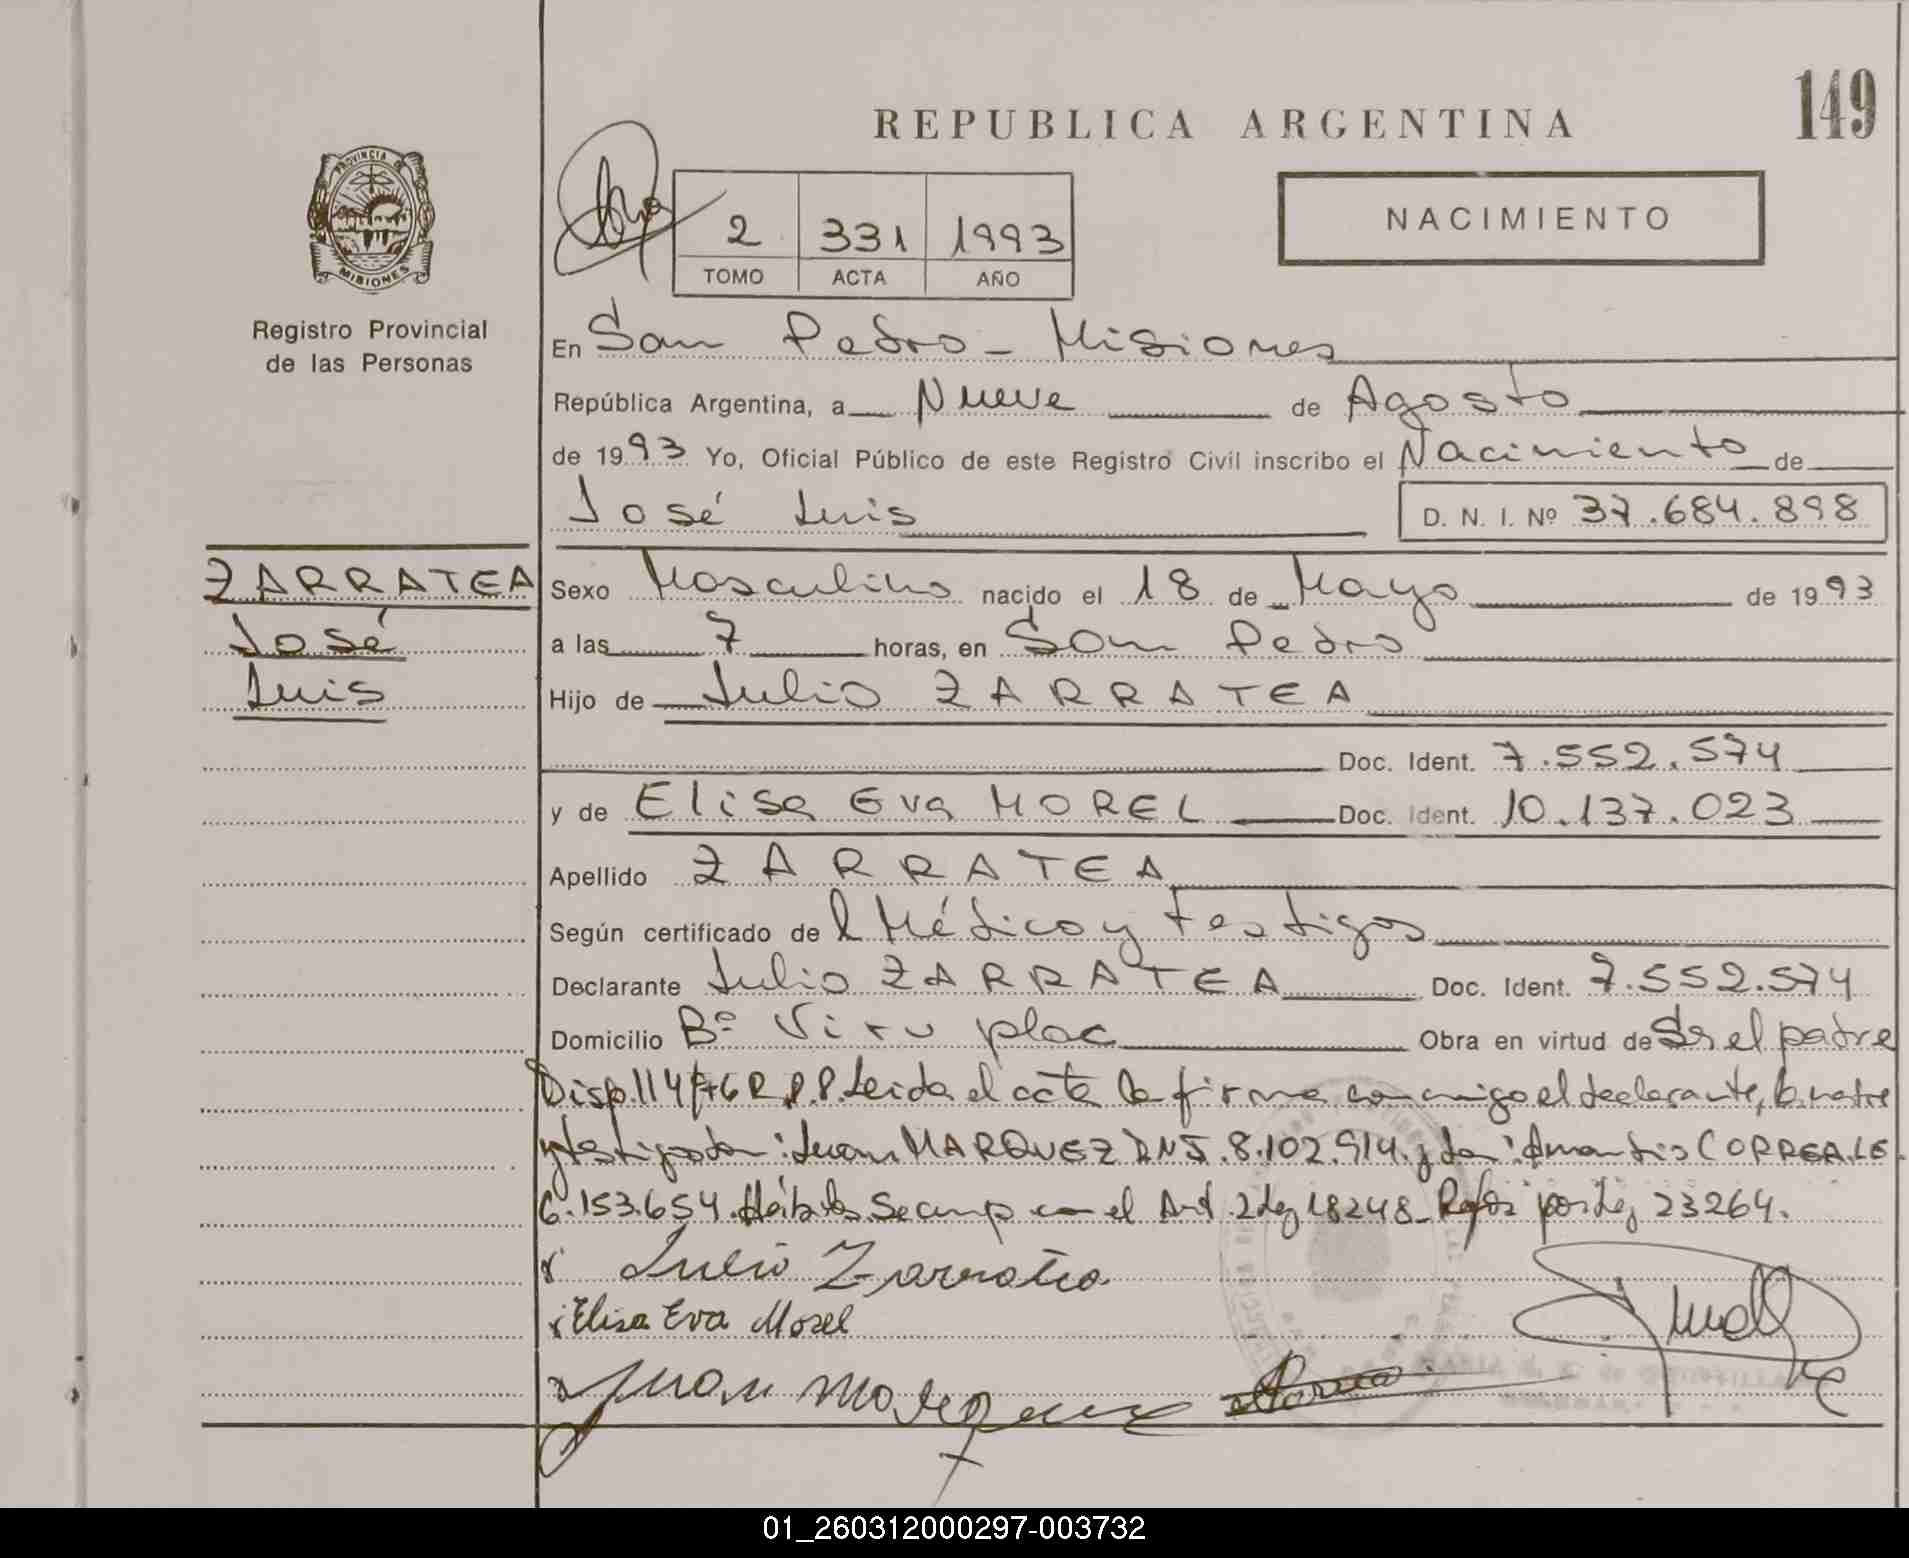 149
REPUBLICA ARGENTINA
NACIMIENTO
PROVINCIA DE
MISIONES
Registro Provincial
de las Personas
2 331 1993
TOMO ACTA AÑO
En San Pedro - Misiones
República Argentina, a Nueve de Agosto
de 1993 Yo, Oficial Público de este Registro Civil inscribo el Nacimiento de
José Luis D. N. I. Nº 37.684.898
ZARRATEA
José
Luis
Sexo Masculino nacido el 18 de Mayo de 1993
a las 7 horas, en San Pedro
Hijo de Julio ZARRATEA
Doc. Ident. 7.552.574
y de Elisa Eva MOREL Doc. Ident. 10.137.023
Apellido ZARRATEA
Según certificado del Médico y Testigos
Declarante Julio ZARRATEA Doc. Ident. 7.552.574
Domicilio Bº Viru plac Obra en virtud de Ser el padre
Disp. 114/76 R.P.P. Leida el acta la firma conmigo el declarante, la madre
y testigos Don: Juan MARQUEZ DNI. 8.102.914. y Don: CORREA. LE.
6.153.654. Hábiles. Se cump con el Art 2 Ley 18248 - por Ley 23264.
Julio Zarratea
Elisa Eva Morel
Juan Marquez
01_260312000297-003732